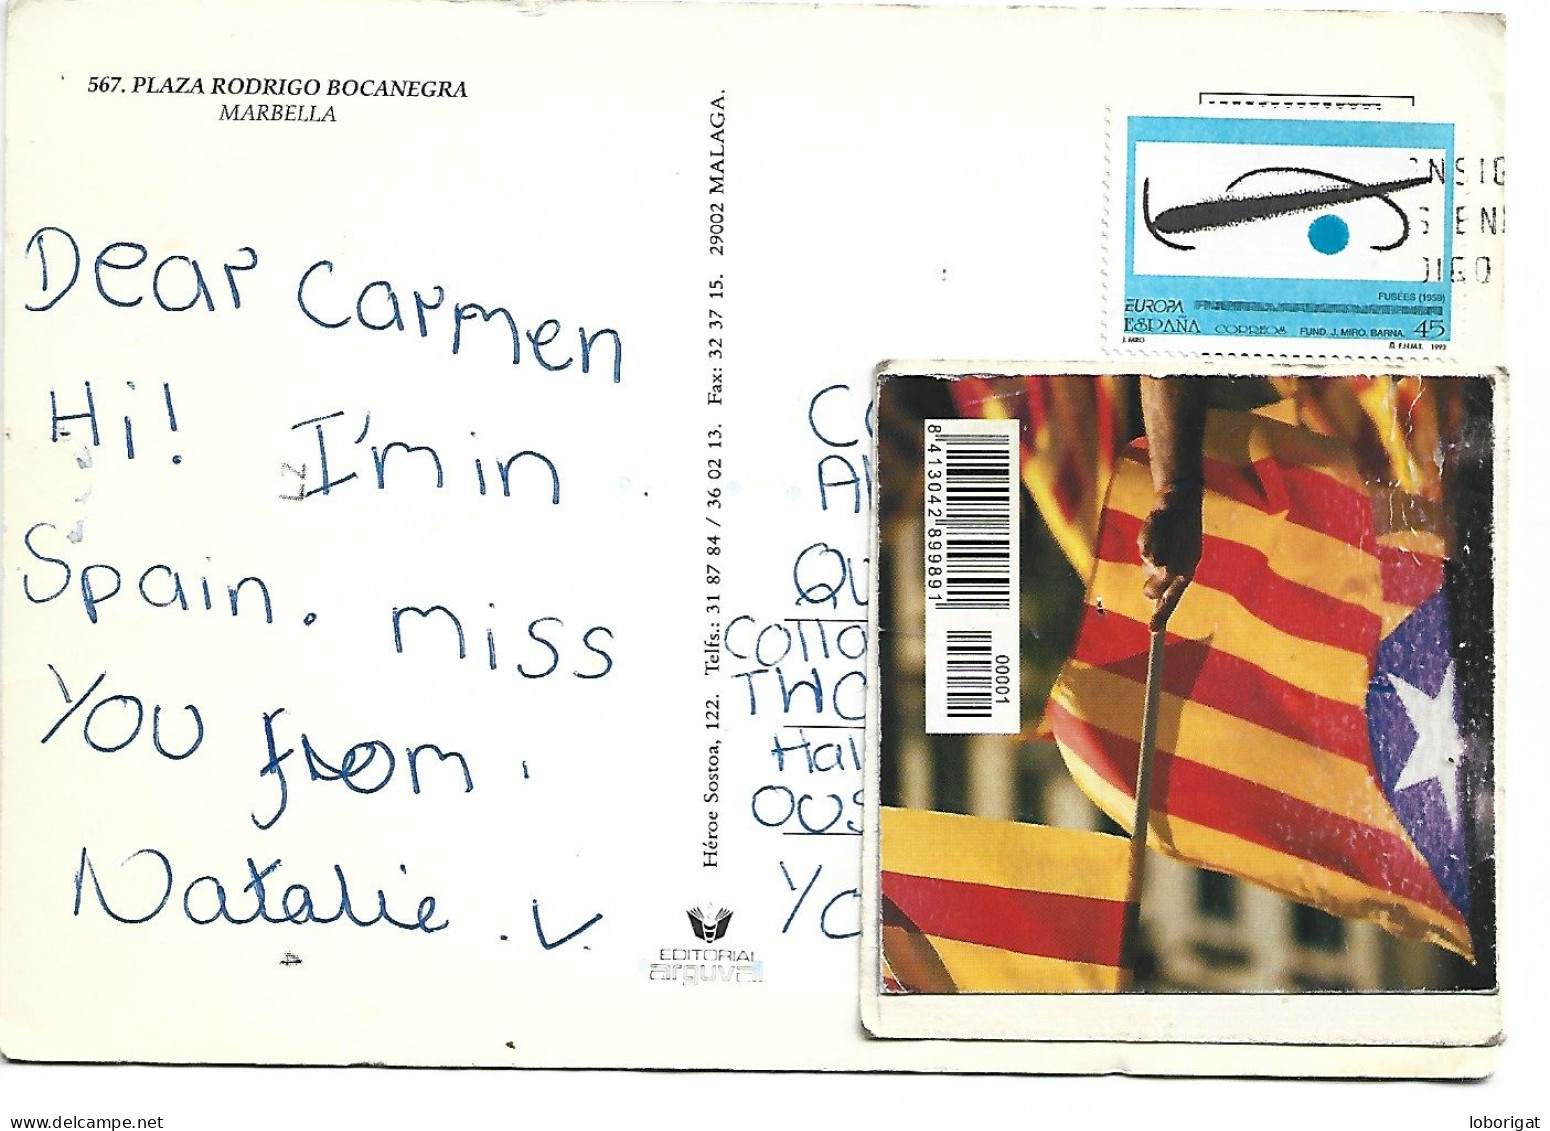 567. PLAZA RODRIGO BOCANEGRA
MARBELLA
Dear Carmen
Hi! I'm in
Spain. miss
You from.
Natalie. V.
Héroe Sostoa, 122. Telfs.: 31 87 84 / 36 02 13. Fax: 32 37 15. 29002 MALAGA.
EDITORIAL
arguval
EUROPA
ESPAÑA CORREOS
FUSÉES (1959)
FUND. J. MIRO. BARNA. 45
J. MIRO
1993
NSIG
S EN
DIGO
Qu
Colla
TWO
Hal
OUS
Yo
8 413042 899891
00001
www.delcampe.net
loborigat